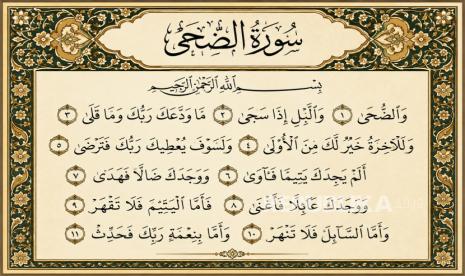 سُورَةُ الضُّحَى
بِسْمِ اللَّهِ الرَّحْمَٰنِ الرَّحِيمِ
وَالضُّحَى ١ وَالَّيْلِ إِذَا سَجَى ٢ مَا وَدَّعَكَ رَبُّكَ وَمَا قَلَى ٣
وَلَلْآخِرَةُ خَيْرٌ لَّكَ مِنَ الْأُولَى ٤ وَلَسَوْفَ يُعْطِيكَ رَبُّكَ فَتَرْضَى ٥
أَلَمْ يَجِدْكَ يَتِيمًا فَـَٔاوَى ٦ وَوَجَدَكَ ضَالًّا فَهَدَى ٧
وَوَجَدَكَ عَآئِلًا فَأَغْنَى ٨ فَأَمَّا الْيَتِيمَ فَلَا تَقْهَرْ ٩
وَأَمَّا السَّآئِلَ فَلَا تَنْهَرْ ١٠ وَأَمَّا بِنِعْمَةِ رَبِّكَ فَحَدِّثْ ١١